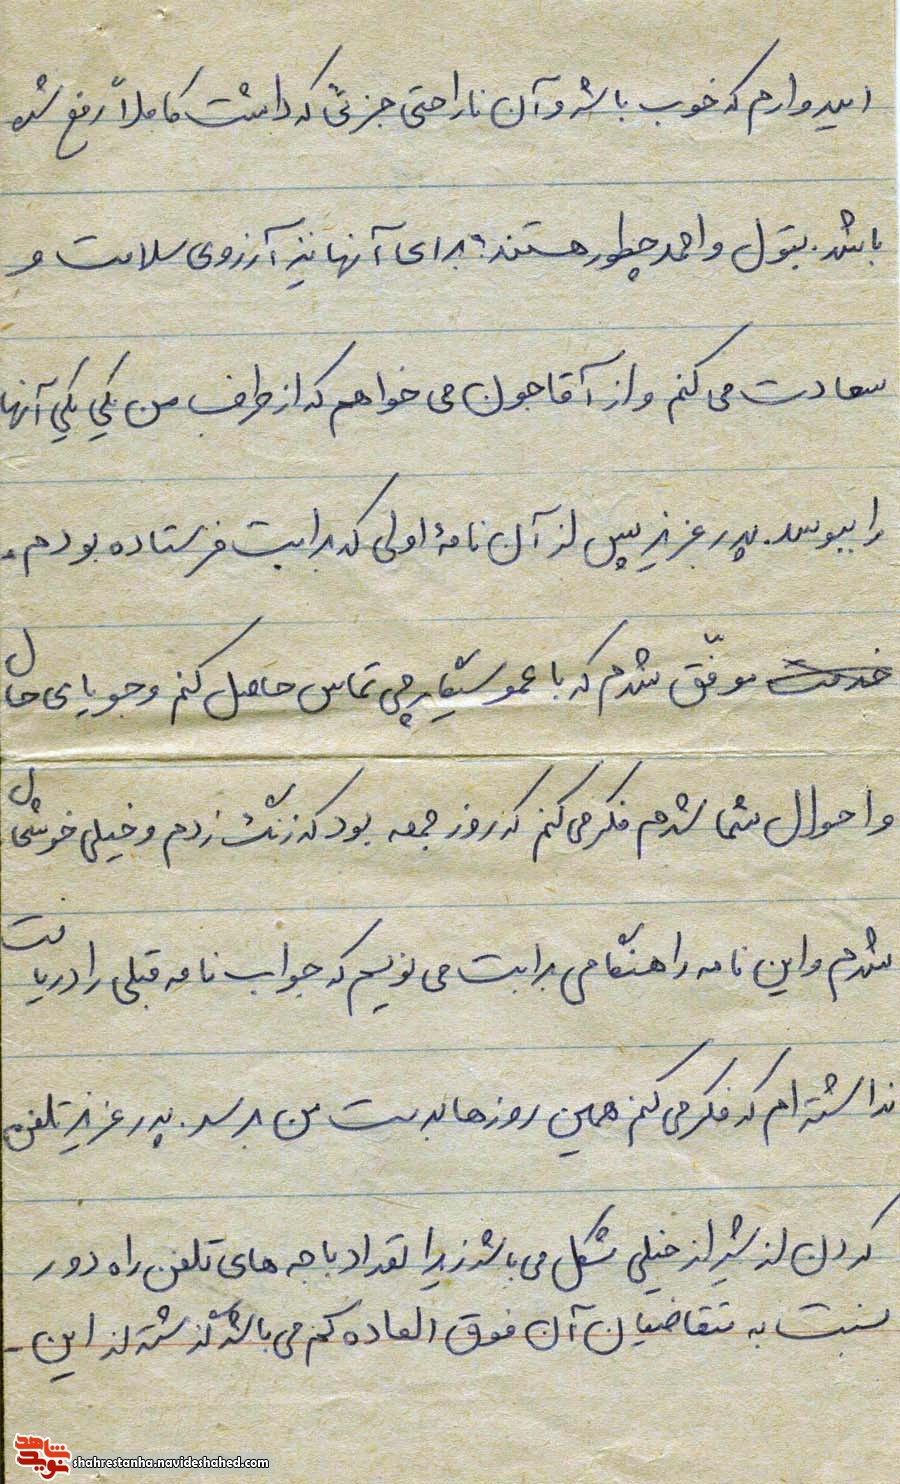 امیدوارم که خوب باشد و آن ناراحتی جزئی که داشت کاملاً رفع شده
باشد. بتول و احمد چطور هستند؟ برای آنها نیز آرزوی سلامت و
سعادت می کنم و از آقاجون می خواهم که از طرف من یکی یکی آنها
را ببوسد. پدر عزیز پس از آن نامهٔ اولی که برایت فرستاده بودم.
خدمت موفّق شدم که با عمو سیگارچی تماس حاصل کنم و جویای حال
و احوال شما شدم فکر می کنم که روز جمعه بود که زنگ زدم و خیلی خوشحال
شدم و این نامه را هنگامی برایت می نویسم که جواب نامه قبلی را دریافت
نداشته ام که فکر می کنم همین روزها بدست من برسد. پدر عزیز تلفن
کردن از شیراز خیلی مشکل می باشد زیرا تعداد باجه های تلفن راه دور
نسبت به متقاضیان آن فوق العاده کم می باشد گذشته از این -
نوید شاهد
shahrestanha.navideshahed.com